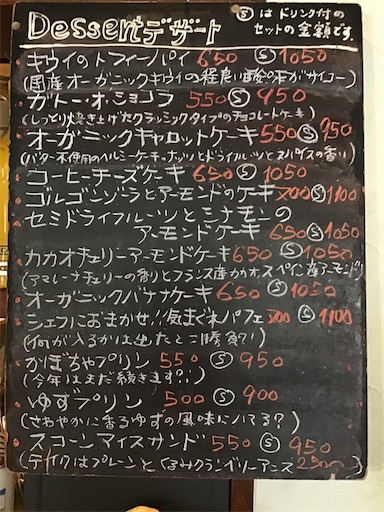 Dessert デザート
Ⓢは ドリンク付の
セットの金額です.
キウイのトフィーパイ 650 Ⓢ1050
(国産オーガニックキウイの程良い酸味がサイコー)
ガトー・オ・ショコラ 550 Ⓢ 950
(しっとり焼き上げたクラシックタイプのチョコレートケーキ)
オーガニックキャロットケーキ 550 Ⓢ 950
(バター不使用のヘルシーケーキ。ナッツとドライフルーツとスパイスの香り)
コーヒーチーズケーキ 650 Ⓢ 1050
ゴルゴンゾーラとアーモンドのケーキ 700 Ⓢ1100
セミドライフルーツとシナモンの
アーモンドケーキ 650 Ⓢ1050
カカオチェリーアーモンドケーキ 650 Ⓢ 1050
(アマレーナチェリーの香りとフランス産カカオ スペイン産アーモンド)
オーガニックバナナケーキ 650 Ⓢ 1050
シェフにおまかせ!!気まぐれパフェ 700 Ⓢ 1100
(何が入るかは出たとこ勝負?!)
かぼちゃプリン 550 Ⓢ 950
(今年はまだ続きます?!)
ゆずプリン 500 Ⓢ 900
(さわやかに香るゆずの風味にハマる?)
スコーンアイスサンド 550 Ⓢ 950
(テイクはプレーンと くるみクランベリーアンズ 250)